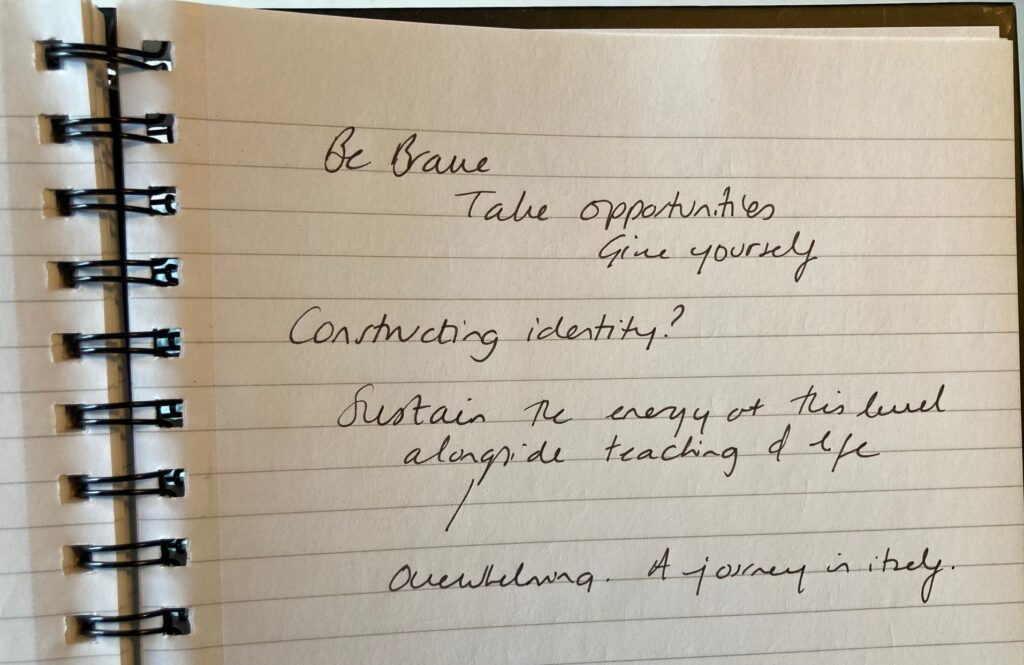 Be Brave
Take opportunities
Give yourself
Constructing identity?
Sustain the energy at this level
alongside teaching & life
Overwhelming. A journey in itself.